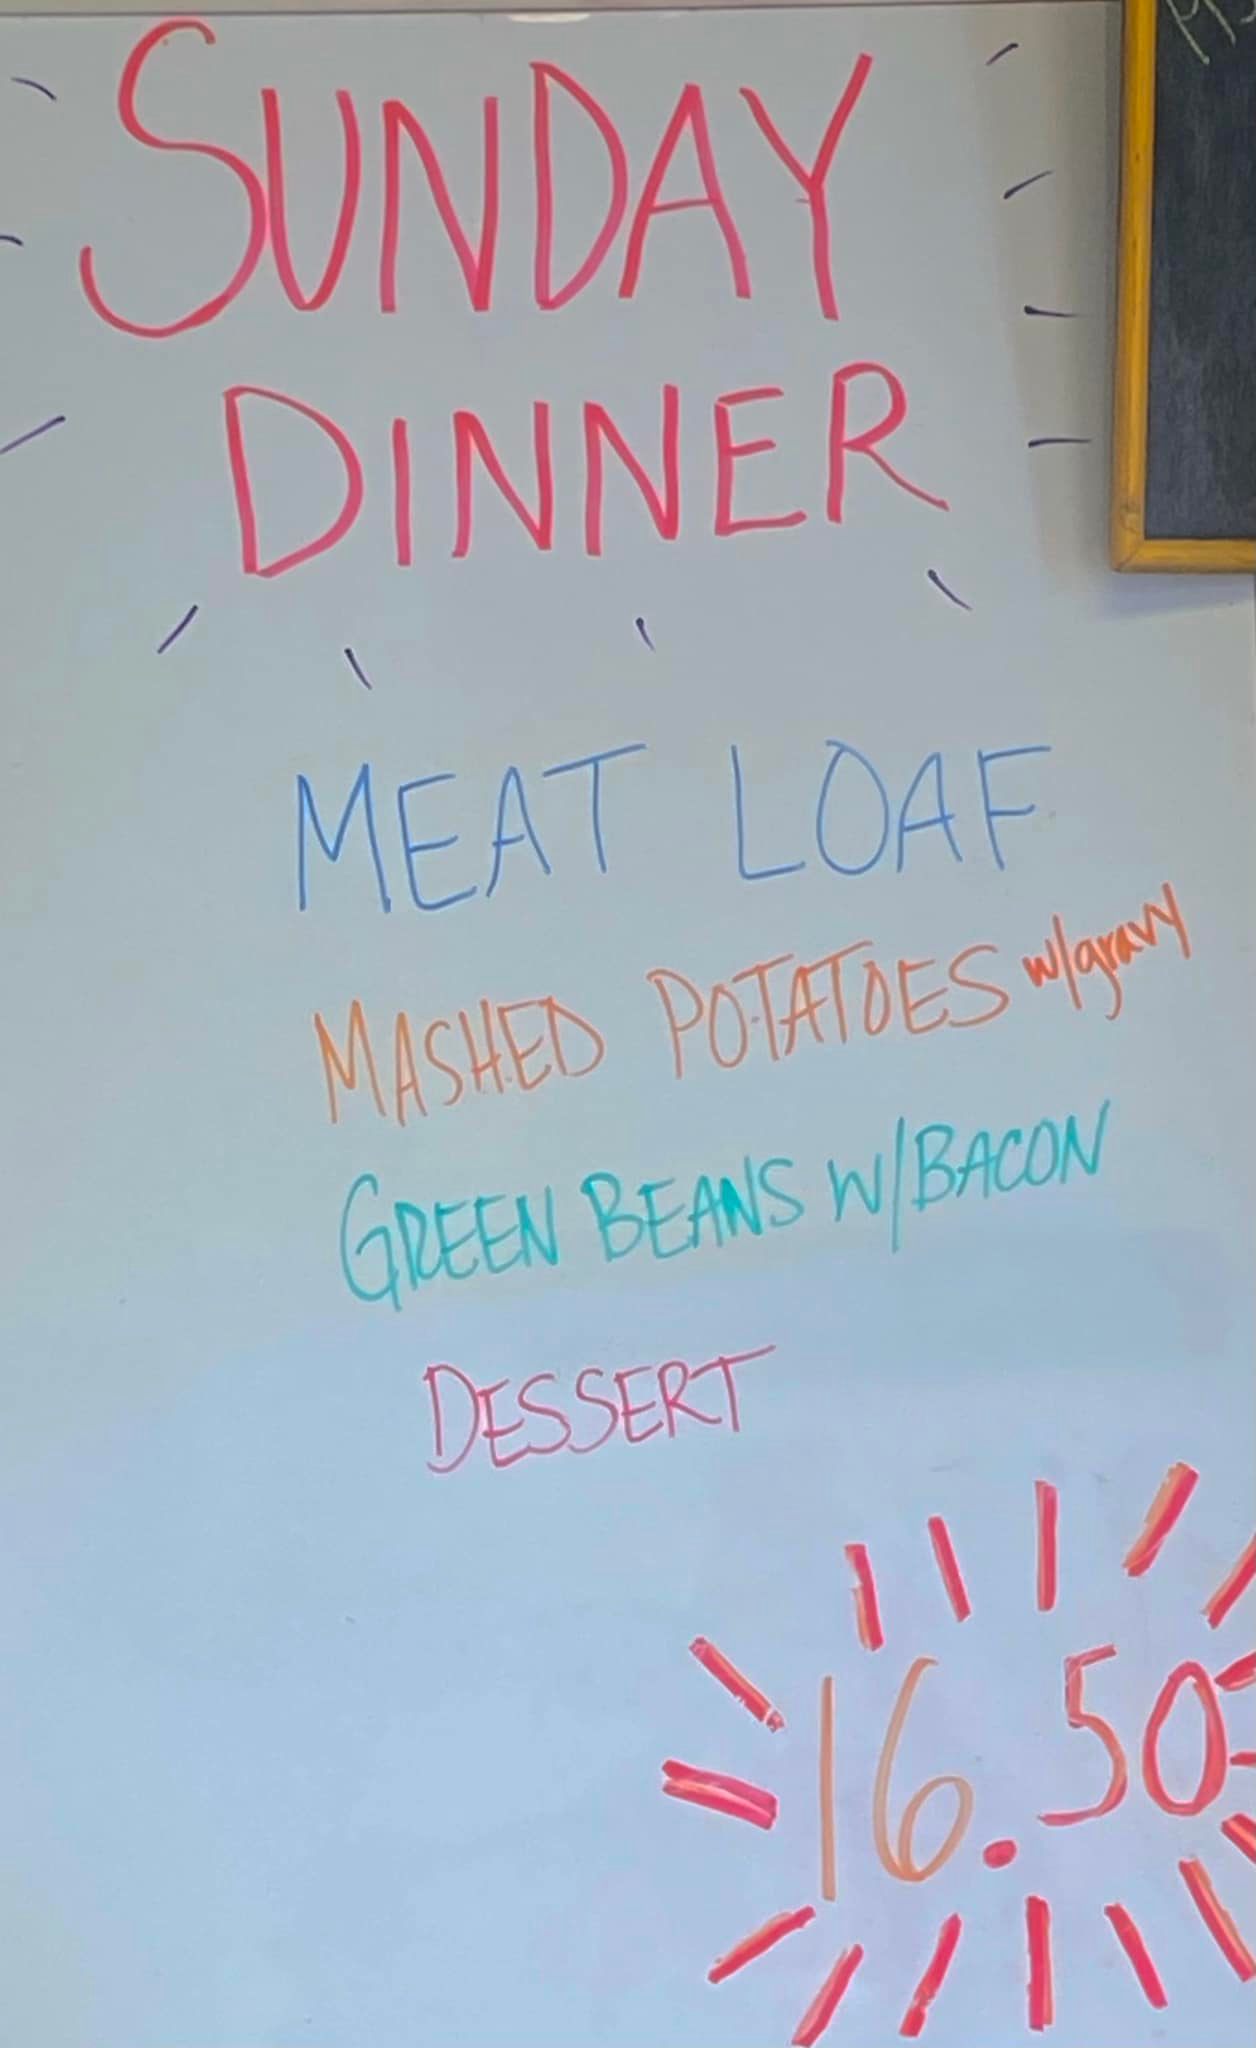 SUNDAY
DINNER
MEAT LOAF
MASHED POTATOES w/gravy
GREEN BEANS W/BACON
DESSERT
16.50